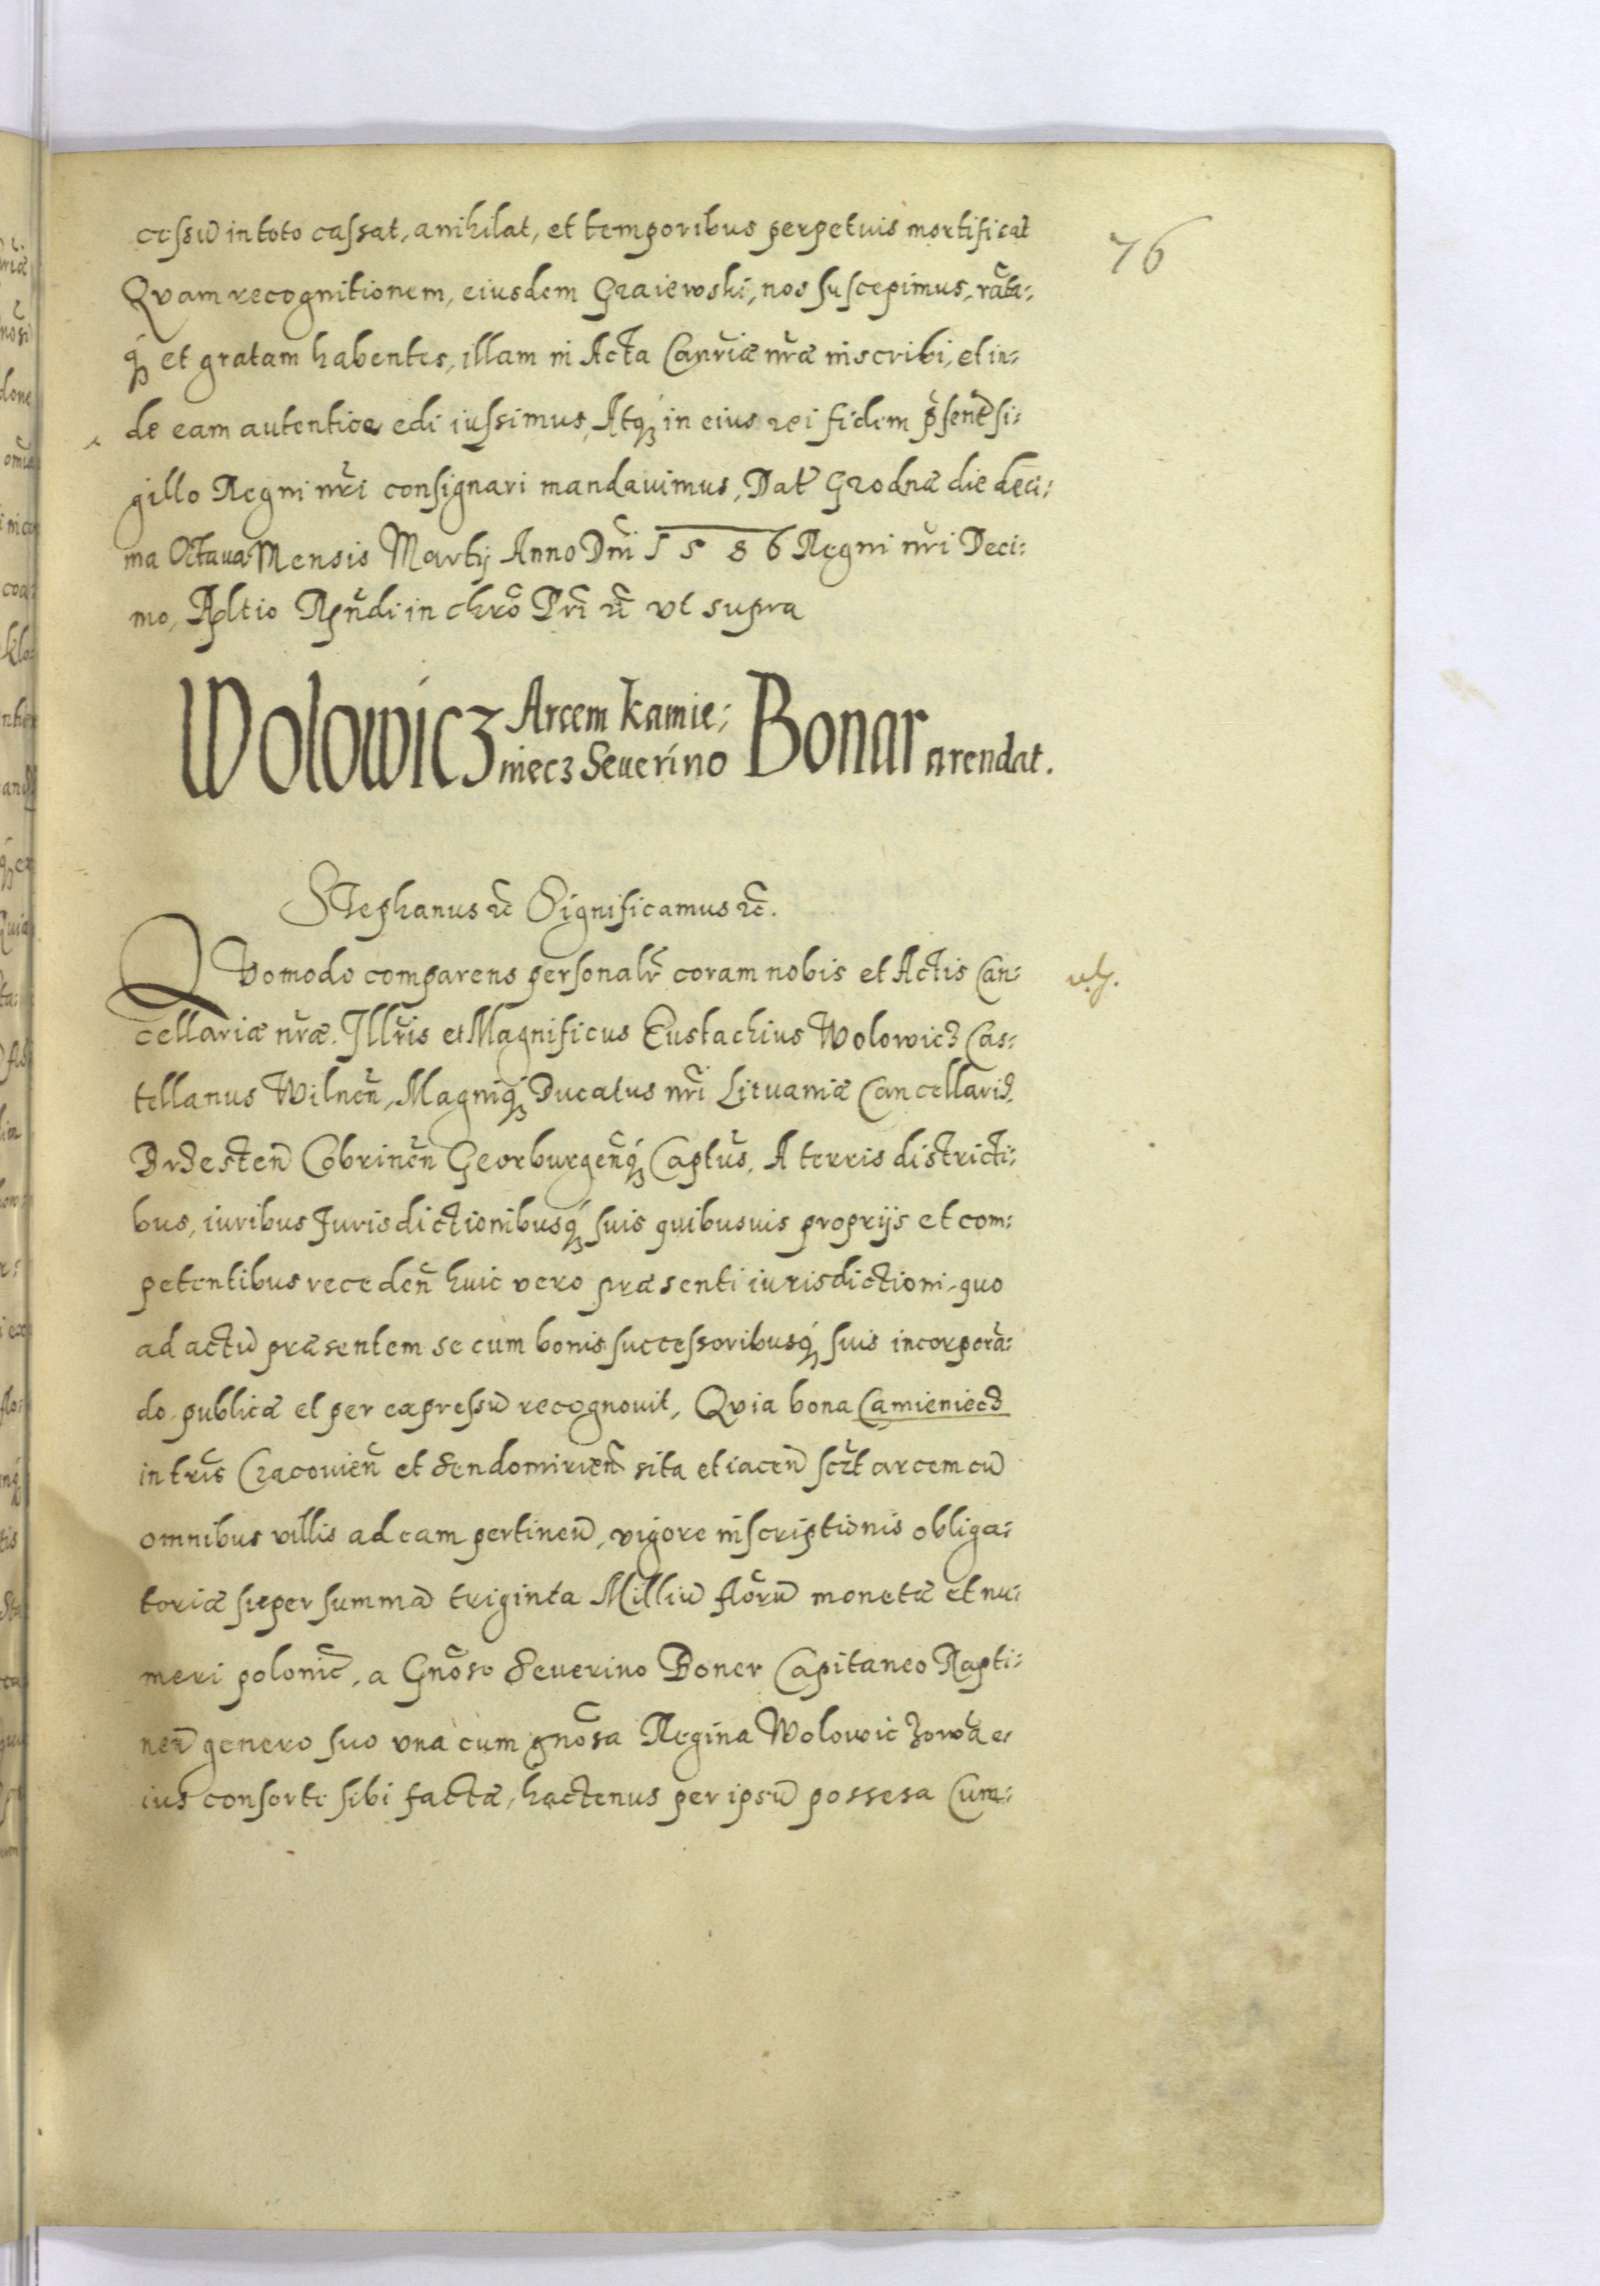 76
cessū in toto cassat, anihilat, et temporibus perpetuis mortificat
Qvam recognitionem, eiusdem Graiewski, nos suscepimus, ratā:
q́ et gratam habentes, illam in Acta Canriæ nræ inscribi, et in:
de eam autentice edi iussimus, Atq́ in eius rei fidem p̃sent̃ si:
gillo Regni nr̃i consignari mandavimus, Dat̃ Grodnæ die deci:
ma Octava Mensis Martij Anno Dnĩ 1586 Regni nr̃i Deci:
mo, Rltio Rñdi in chrõ Pr̃i r̃c vt supra
Wolowicz Arcem Kamie:
niecz Seuerino Bonar arendat.
Stephanus r̃c Significamus r̃c.
Qvomodo comparens personalr̃ coram nobis et Actis Can:
cellariæ nr̃æ. Illr̃is et Magnificus Eustachius Wolowicz Cas:
tellanus Wilneñ, Magniq́ Ducatus nr̃i Lituaniæ Cancellarig
Brzesteñ Cobrineñ Georburgeñq́ Captũs, A terris districti:
bus, iuribus Jurisdictionibusq́ suis quibusuis proprijs et com:
petentibus recedeñ huic vero præsenti iurisdictioni, quo
ad actū præsentem se cum bonis successoribusq́ suis incorporā:
do, publicæ et per expressū recognouit, Qvia bona Camieniecz
in tr̃is Cracovieñ et Sendomirieñ sita et iaceñ scr̃t arcem cū
omnibus villis ad eam pertineñ, vigore inscriptionis obliga:
toriæ super summā triginta Milliū florū monetæ et nu:
meri polonic̃, a Gnõso Seuerino Boner Capitaneo Rapti:
neñ genero suo vna cum gnõsa Regina Wolowiczowa e:
ius consorte sibi factæ, hactenus per ipsū possesa Cum: